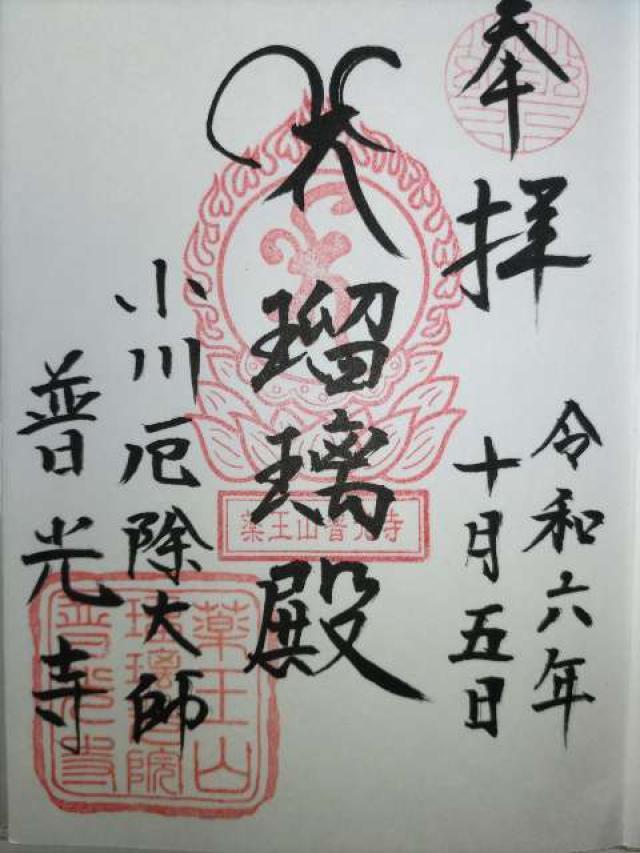 奉拝
令和六年
十月五日
瑠璃殿
薬王山普光寺
小川厄除大師
普光寺
薬王山
瑠璃光院
普光寺